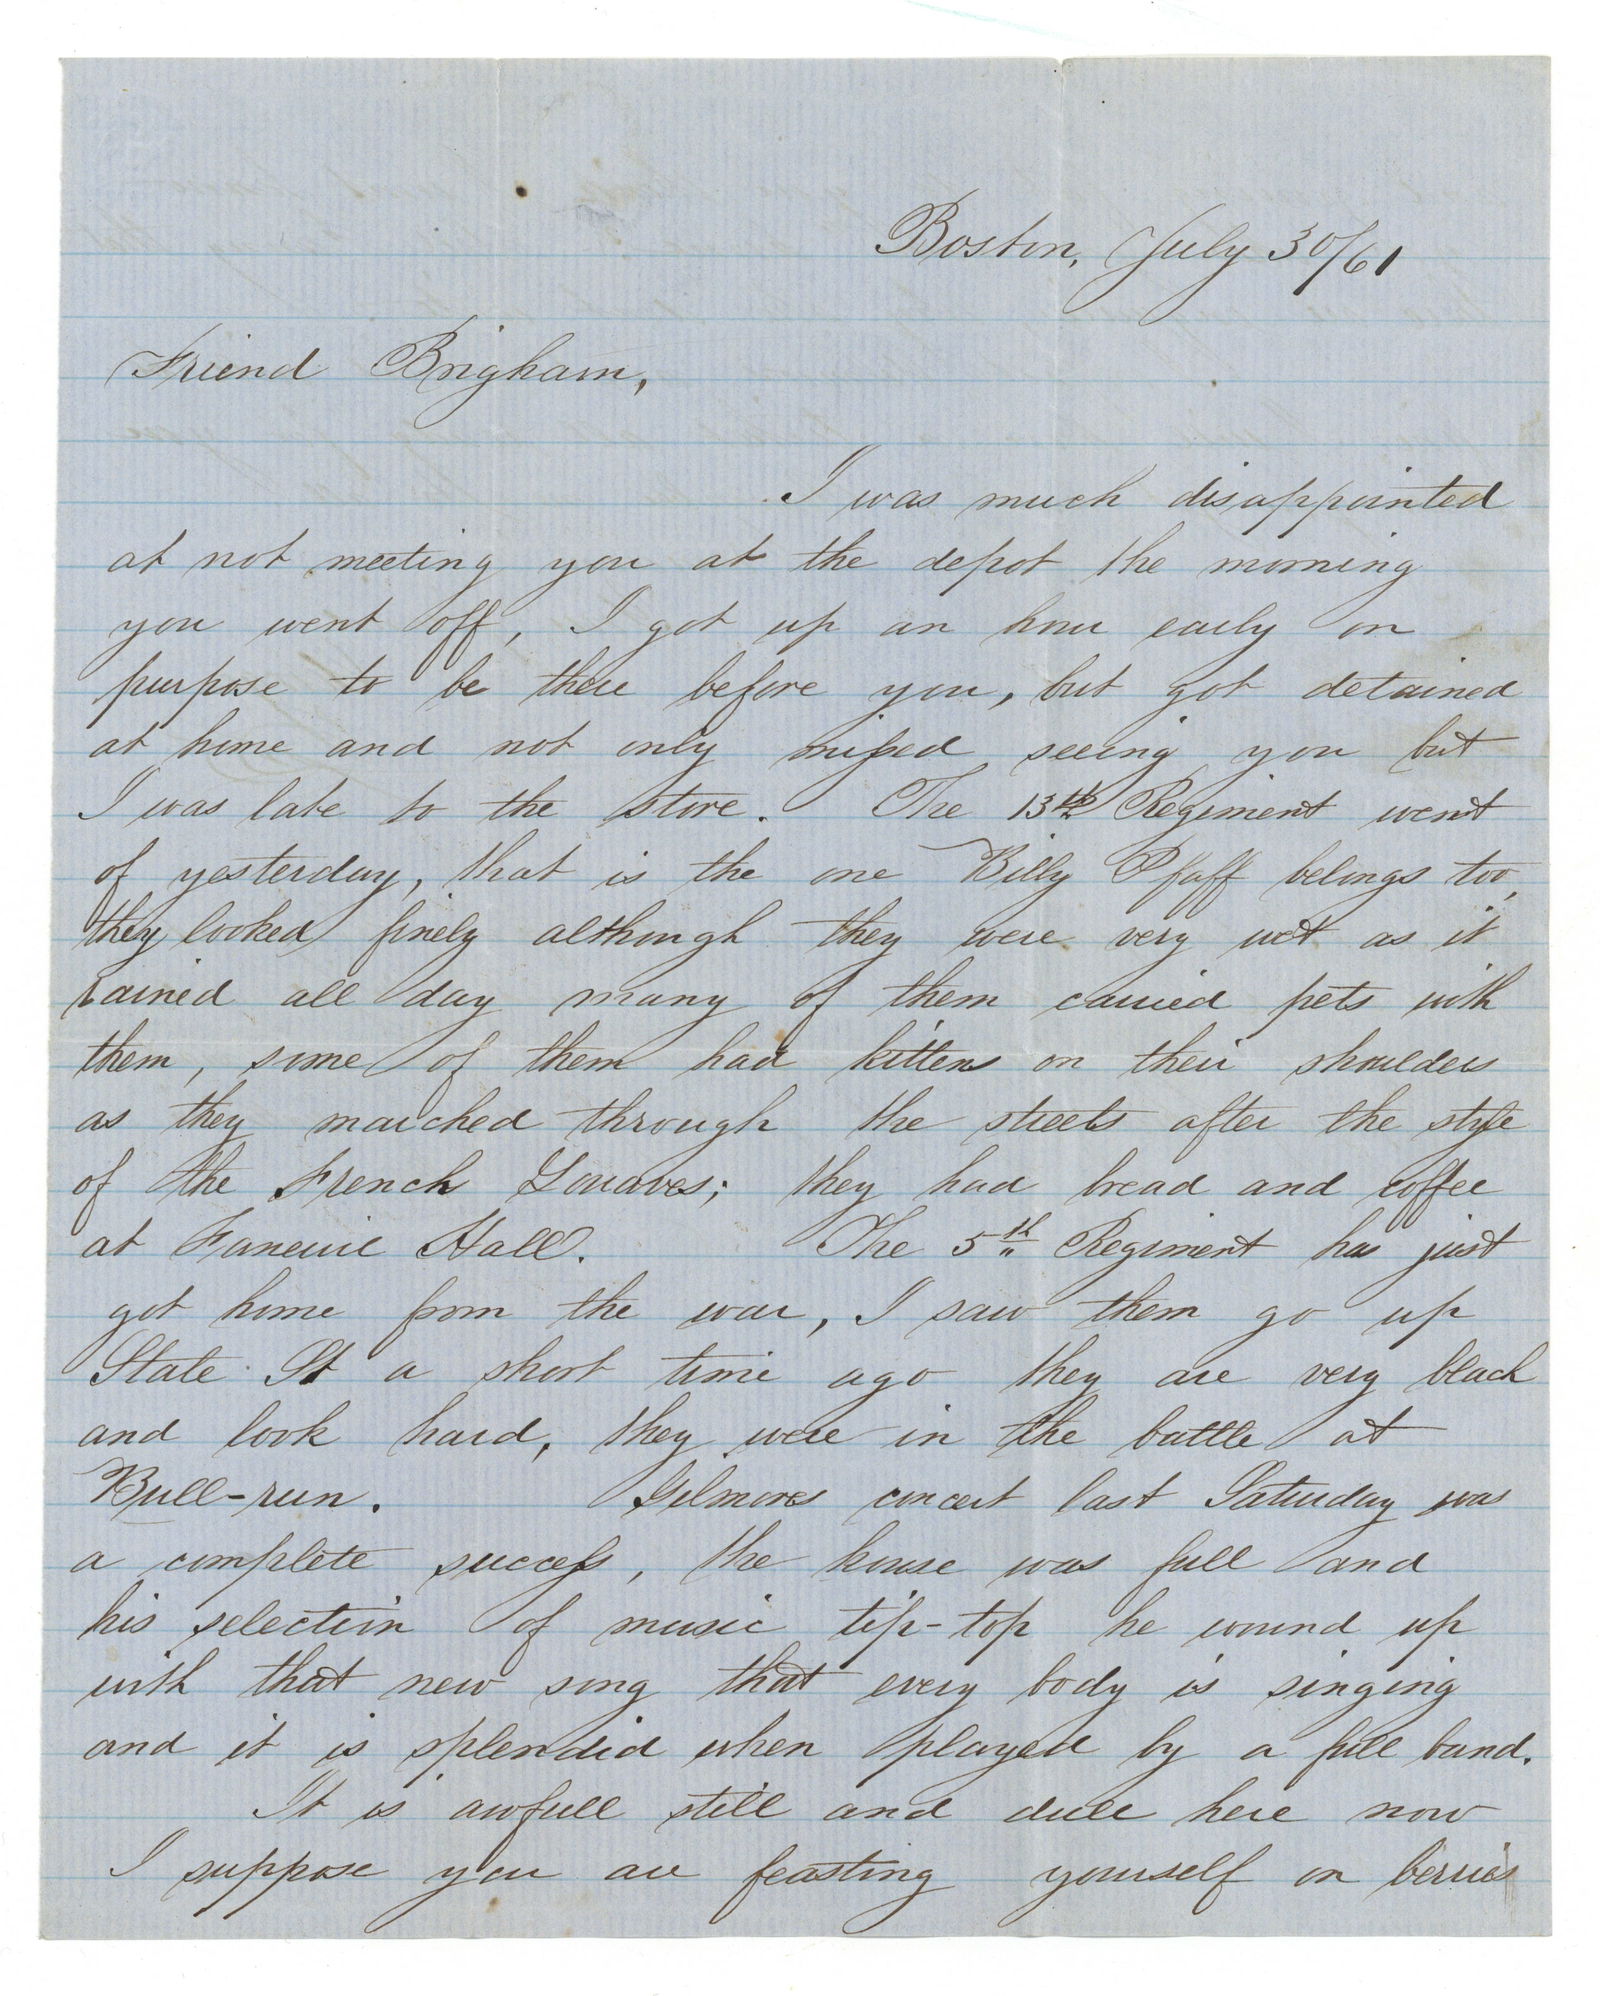 Boston, July 30/61
Friend Brigham,
I was much disappointed
at not meeting you at the depot the morning
you went off, I got up an hour early on
purpose to be there before you, but got detained
at home and not only missed seeing you but
I was late to the store. The 13th Regiment went
of yesterday, that is the one Billy Pfaff belongs too,
they looked finely although they were very wet as it
rained all day many of them carried pets with
them, some of them had kittens on their shoulders
as they marched through the streets after the style
of the French Zouaves; they had bread and coffee
at Faneuil Hall. The 5th Regiment has just
got home from the war, I saw them go up
State St a short time ago they are very black
and look hard, they were in the battle at
Bull-run. Gilmores concert last Saturday was
a complete success, the house was full and
his selection of music tip-top he wound up
with that new song that every body is singing
and it is splendid when played by a full band.
It is awfull still and dull here now
I suppose you are feasting yourself on berries